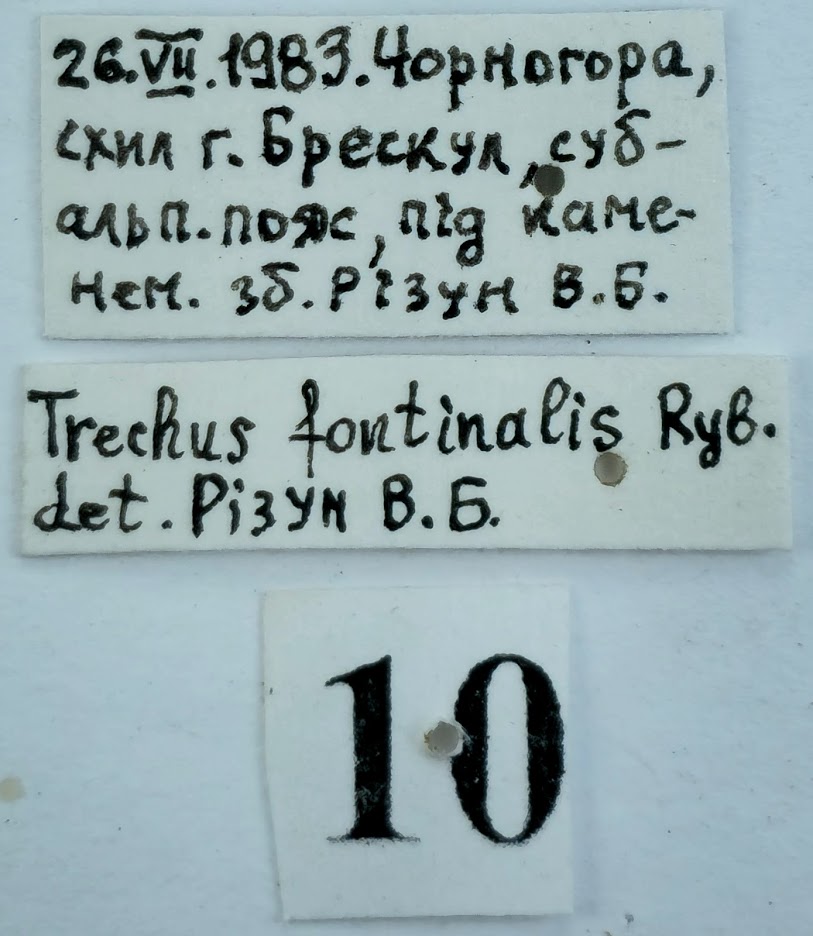 26.VII.1983. Чорногора,
схил г. Брескул, суб-
альп. пояс, під каме-
нем. зб. Різун В.Б.
Trechus fontinalis Ryb.
det. Різун В.Б.
10